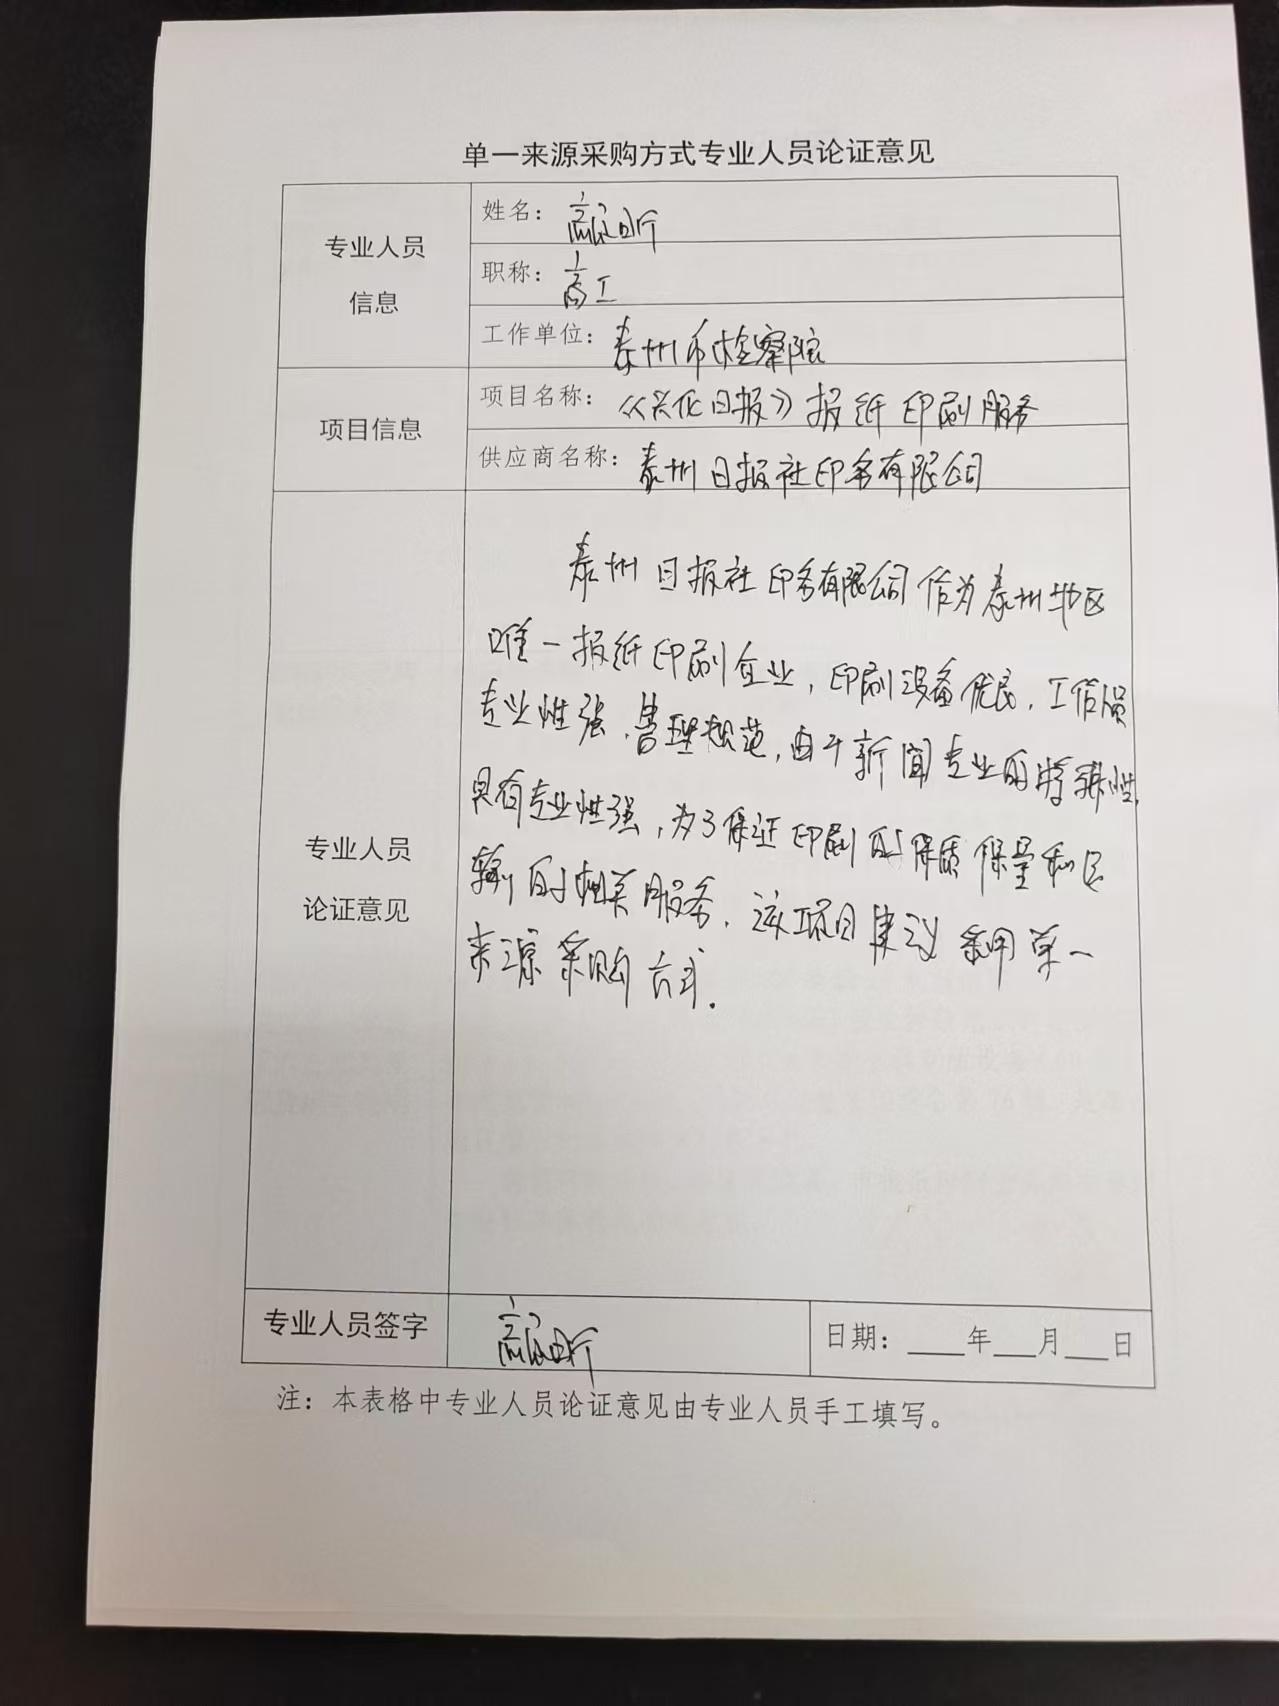 单一来源采购方式专业人员论证意见
专业人员
信息
姓名：高
职称：高工
工作单位：泰州市检察院
项目信息
项目名称：《兴化日报》报纸印刷服务
供应商名称：泰州日报社印务有限公司
专业人员
论证意见
泰州日报社印务有限公司作为泰州地区
唯一报纸印刷企业，印刷设备优良，工作人员
专业性强，管理规范，由于新闻专业的特殊性，
具有专业性强，为了保证印刷的保质保量和运
输的相关服务，该项目建议采用单一
来源采购方式.
专业人员签字
高
日期：____年___月___日
注：本表格中专业人员论证意见由专业人员手工填写。